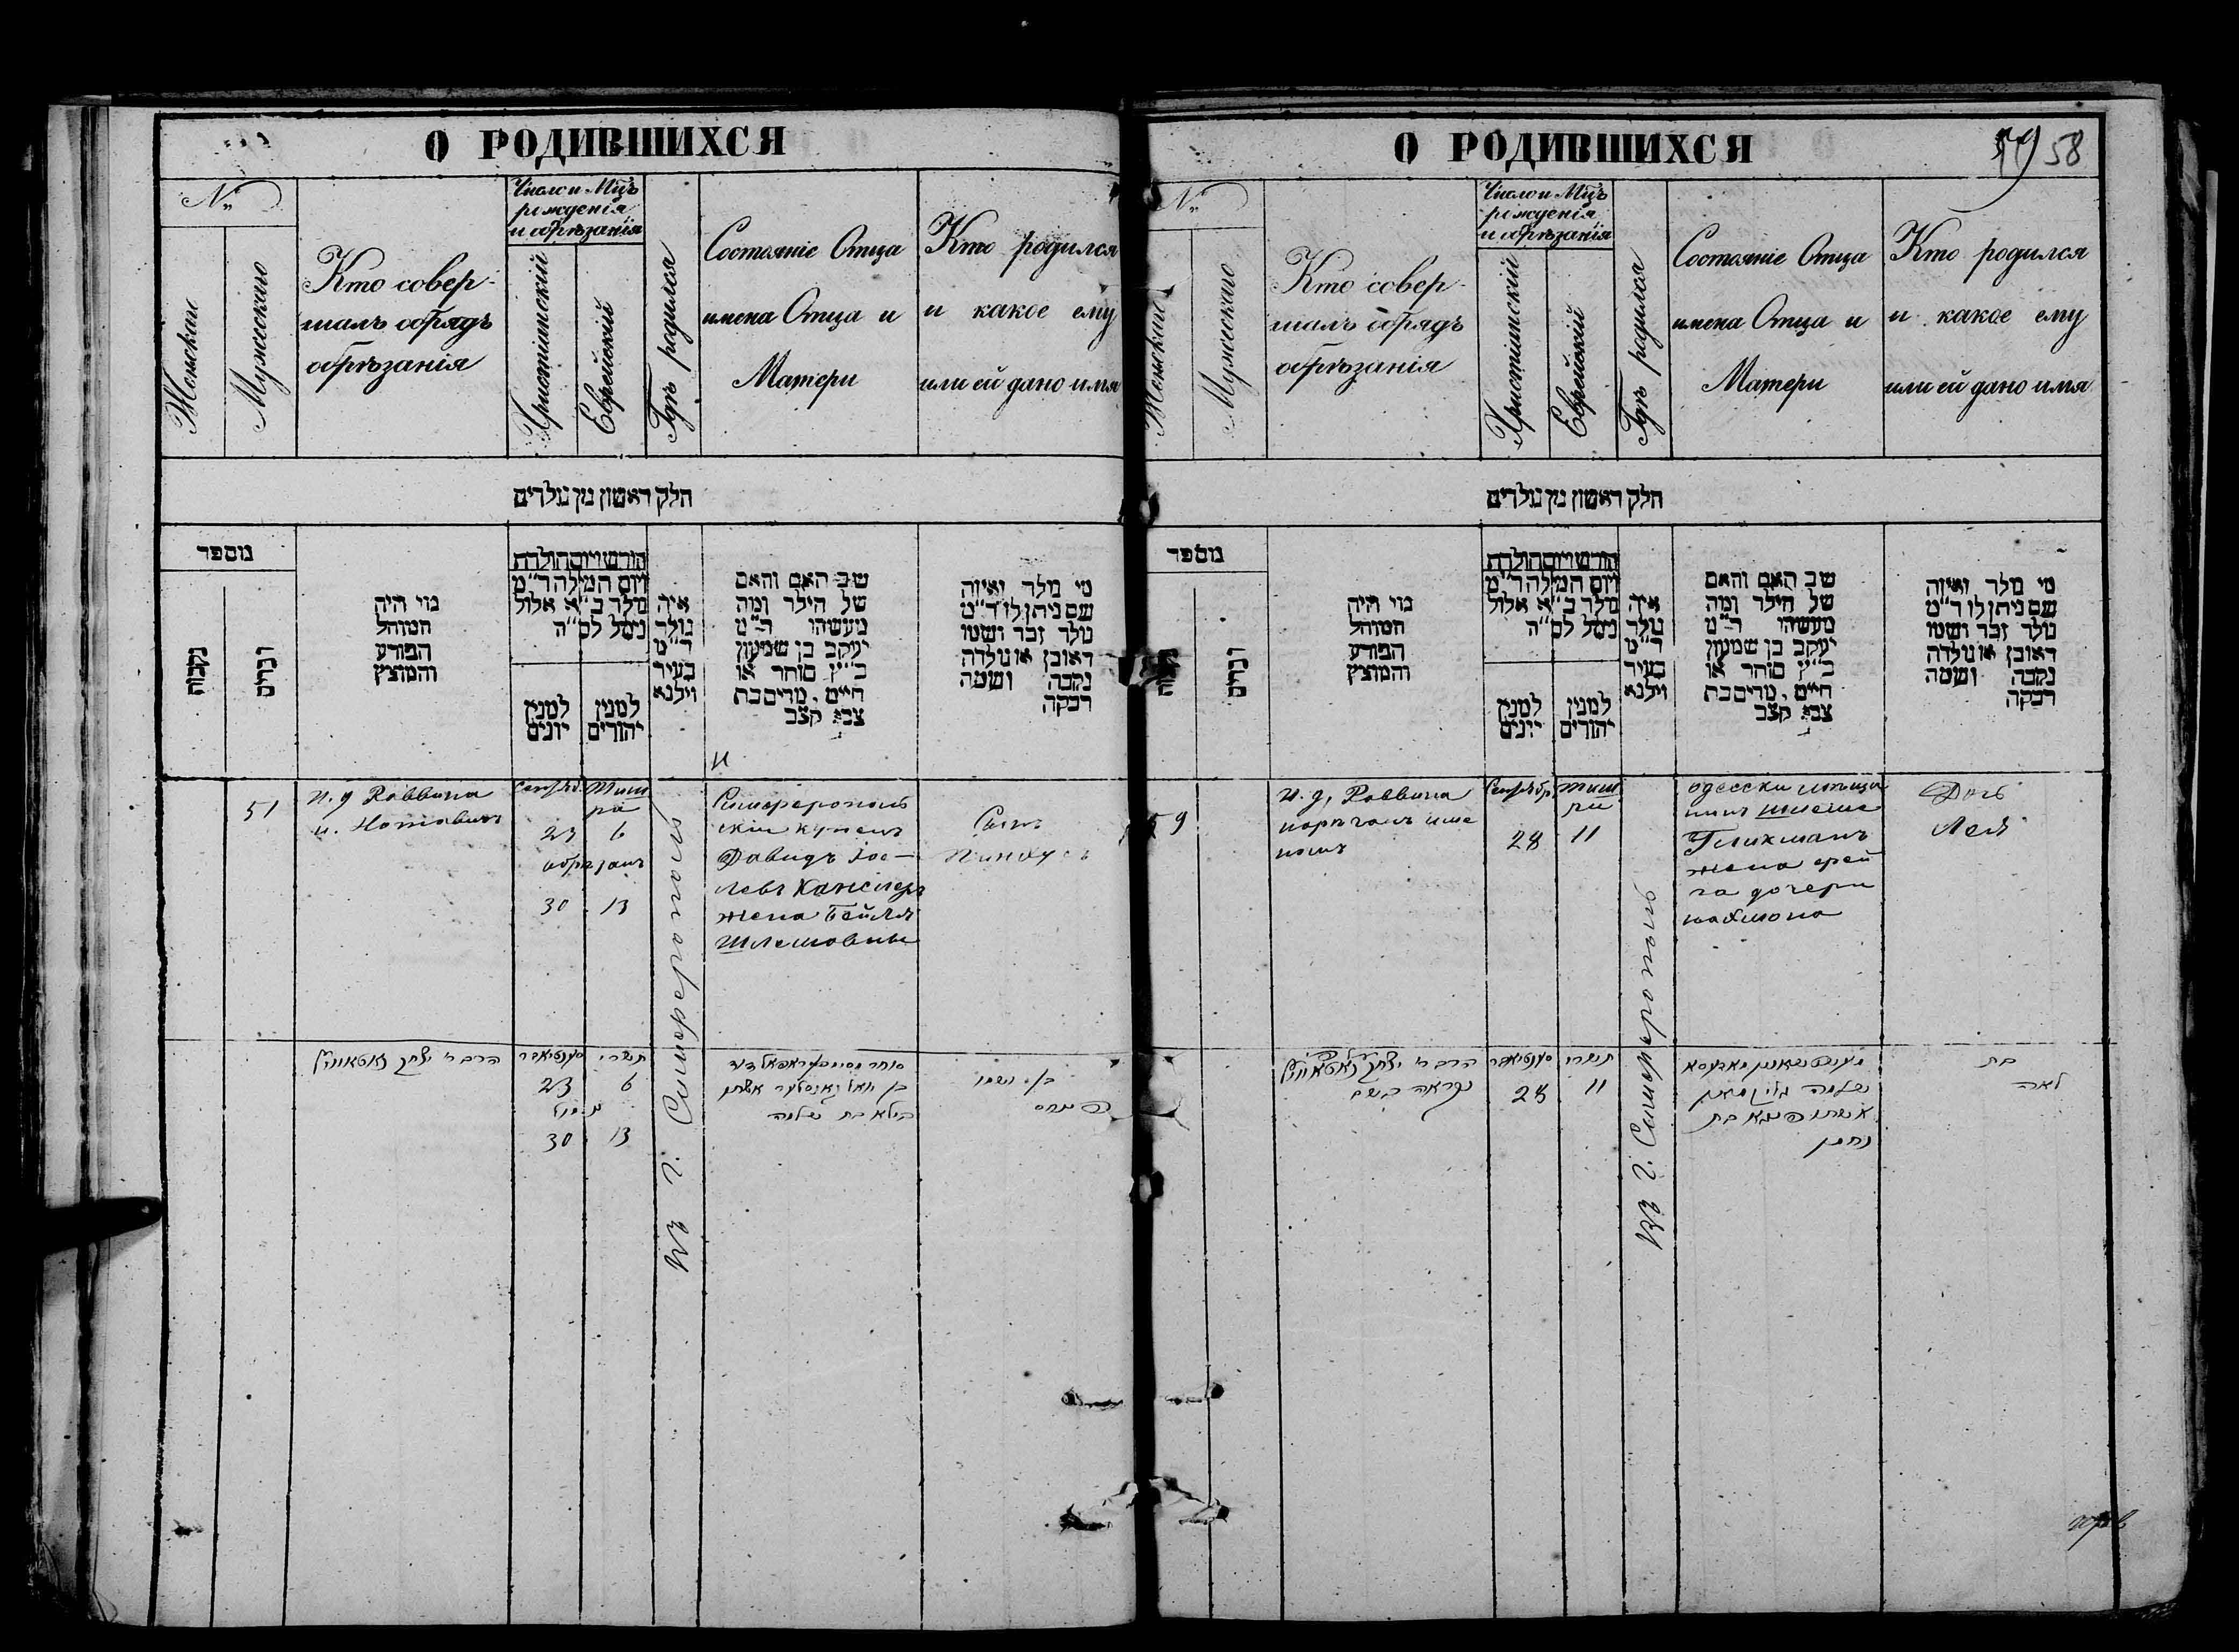 О РОДИВШИХСЯ
№
Женскаго
Мужескаго
Кто совер-
шалъ обрядъ
обрѣзанія
Число и Мцъ
рожденія
и обрѣзанія
Христіянскій
Еврейскій
Гдѣ родился
Состояніе Отца
имена Отца и
Матери
Кто родился
и какое ему
или ей дано имя
חלק ראשון מן נולדים
מספר
נקבות
זכרים
מי היה
המוהל
הפורע
והמוצץ
חודש ויום הולדת
ויום המילה ד״מ
נולד כ״א אלול
נימל לס״ה
למנין
יונים
למנין
יהודים
איה
נולד
ד״מ
בעיר
וילנא
שב האם והאם
של הילד ומה
מעשהו ד״מ
יעקב בן שמעון
כ״ץ סוחר או
חיים, מרים בת
צבי קצב
מי נולד ואיזה
שם ניתן לו ד״מ
נולד זכר ושמו
ראובן או נולדה
נקבה ושמה
רבקה
51
и. д Раввина
и. Нотовичъ
Сентяб.
Тиш
ри
23 6
обрезанъ
30 13
Въ г. Симферополь
Симферополь
скій купецъ
Давидъ Іос-
левъ Канслеръ
жена Бейля
Шлемовны
Сынъ
Пинхусъ
הרב ר׳ יצחק נאטאוויץ
סעפטיאבר
תשרי
23 6
נימול
30 13
בן יואל קאנסלער אשתו
ביילא בת שלמה
בן ושמו
פנחס
О РОДИВШИХСЯ
58
№
Женскаго
Мужескаго
Кто совер-
шалъ обрядъ
обрѣзанія
Число и Мцъ
рожденія
и обрѣзанія
Христіянскій
Еврейскій
Гдѣ родился
Состояніе Отца
имена Отца и
Матери
Кто родился
и какое ему
или ей дано имя
חלק ראשון מן נולדים
מספר
נקבות
זכרים
מי היה
המוהל
הפורע
והמוצץ
חודש ויום הולדת
ויום המילה ד״מ
נולד כ״א אלול
נימל לס״ה
למנין
יונים
למנין
יהודים
איה
נולד
ד״מ
בעיר
וילנא
שב האם והאם
של הילד ומה
מעשהו ד״מ
יעקב בן שמעון
כ״ץ סוחר או
חיים, מרים בת
צבי קצב
מי נולד ואיזה
שם ניתן לו ד״מ
נולד זכר ושמו
ראובן או נולדה
נקבה ושמה
רבקה
9
и. д, Раввина
нарѣчанъ име
немъ
Сентябр
тиш
ри
28 11
Въ г. Симферополь
одесски мѣща
нинъ Шлема
Гликманъ
жена фрей
га дочери
нахмона
Дочь
Лея
הרב ר׳ יצחק נאטאוויץ
נקראה בשם
סעפטיאבר
תשרי
28 11
שלמה גליקמאן
אשתו פריגא בת
נחמן
בת
לאה